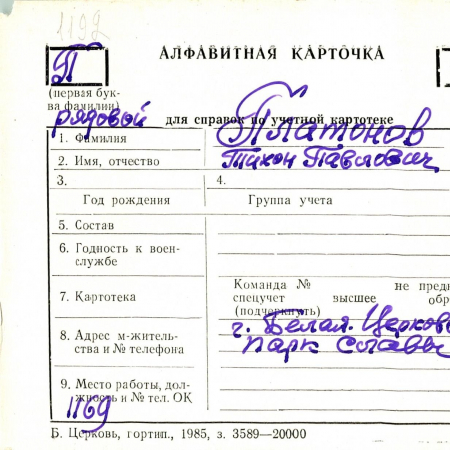 1192
П
АЛФАВИТНАЯ КАРТОЧКА
(первая бук-
ва фамилии)
рядовой
для справок по учетной картотеке
1. Фамилия Платонов
2. Имя, отчество Тихон Павлович
3. 4.
Год рождения Группа учета
5. Состав
6. Годность к воен-
службе
Команда № не предн
7. Картотека спецучет высшее обр
(подчеркнуть)
г. Белая Церковь
8. Адрес м-житель-
ства и № телефона Парк Славы
9. Место работы, дол-
жность и № тел. ОК
1169
Б. Церковь, гортип., 1985, з. 3589—20000